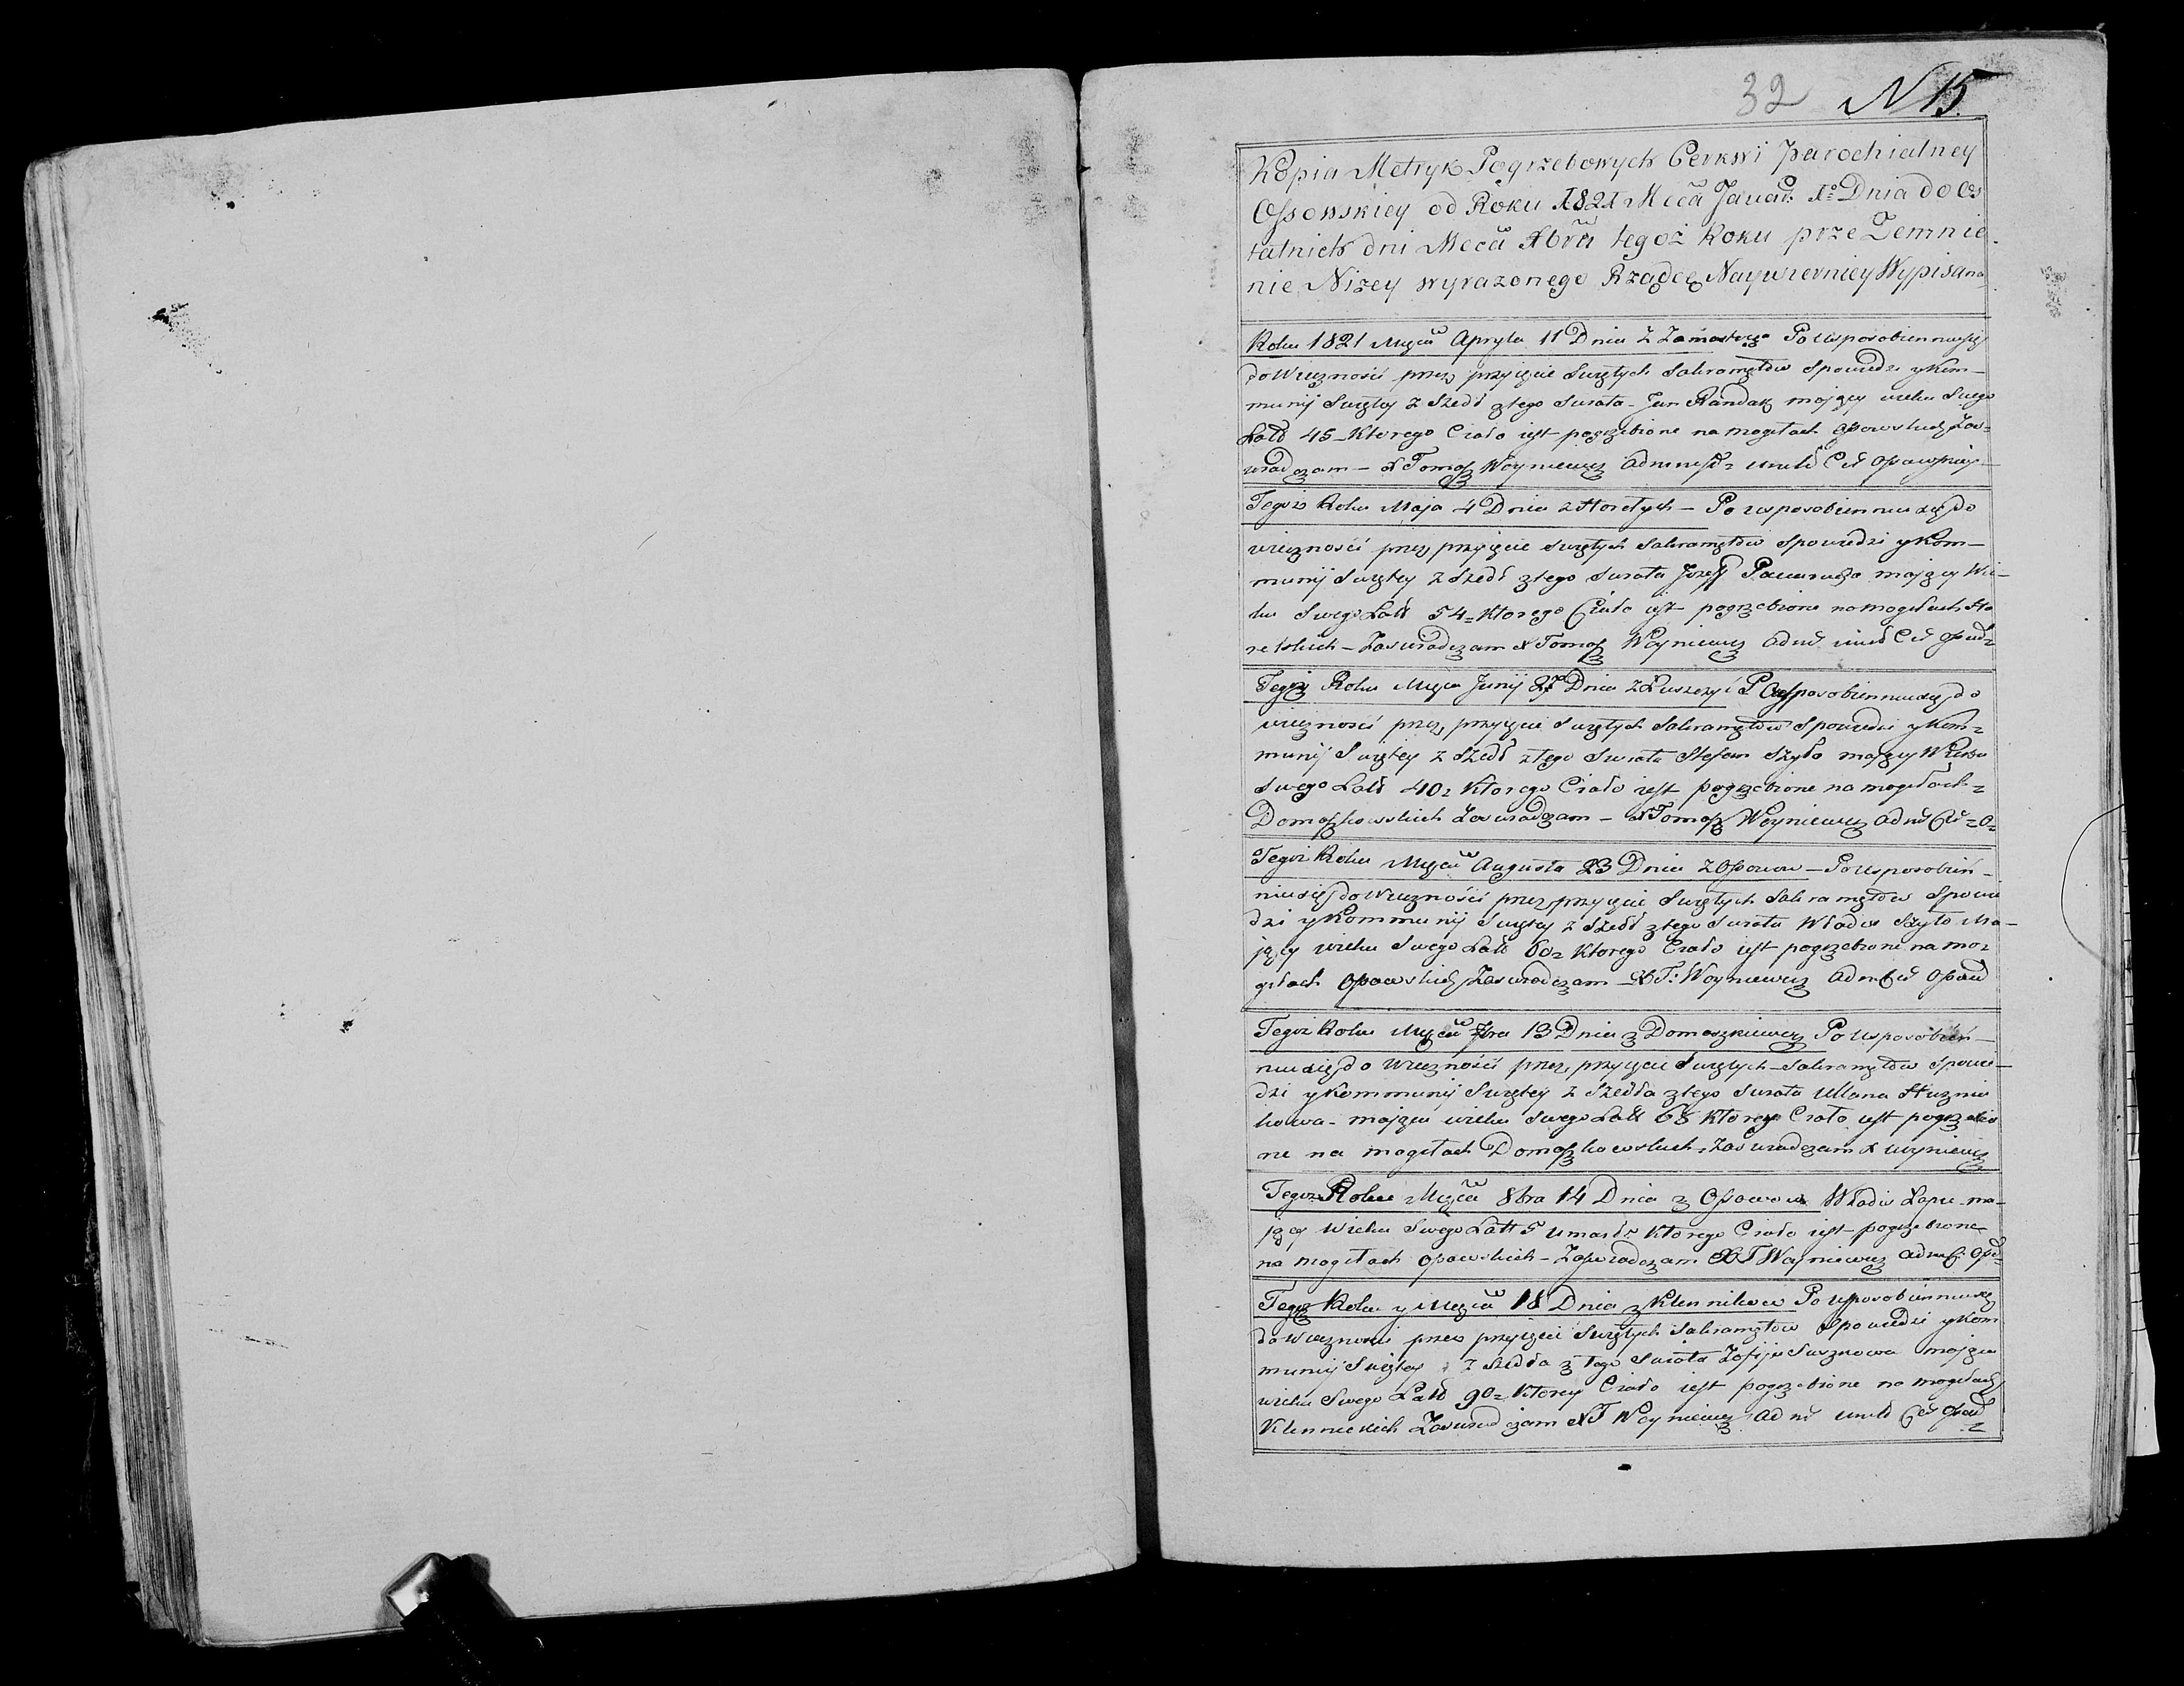 32 N 15.
Kopia Metryk Pogrzebowych Cerkwi Parochialney
Ossowskiey od Roku 1821 Mcca Januar. 1º Dnia do Os
tatnich dni Meca Xbra tegoż Roku prze Zemnie
nie Niżey wyrazonego Rządcę Naywierniey Wypisana
Roku 1821 Mięca Apryla 11 Dnia z Zamostrza Po Usposobienniu się
do Wieczności przez przyięcie Swiętych Sakramętow Spowiedzi y Kom-
munij Swiętey z Szedł z tego Swiata Jan Randak mający wieku Swego
Latt 45 Ktorego Ciało iest pogrzebione na mogiłach Ossowskich Zas-
wiadczam - X Tomasz Woyniewicz Administ:
Tegoż Roku Maja 4 Dnia z Horetych - Po usposobienniu się do
wieczności przez przyięcie Swiętych Sakramętow Spowiedzi y Kom-
munij Swiętey z Szedł z tego Swiata Jozeff mający Wie-
ku Swego Latt 54 = Ktorego Ciało iest pogrzebione na mogiłach Ho
retskich - Zaswiadczam X Tomasz Woyniewicz
Tegoż Roku Mięca Junij 27 Dnia z Puszczyc Po Usposobienniu się do
wieczności przez przyięcie Swiętych Sakramętow Spowiedzi y Kom=
munij Swiętey z Szedł z tego Swiata Stefan Szyło mający Wieku
Swego Latt 40 = Ktorego Ciało iest pogrzebione na mogiłach =
Domaszkowskich Zaswiadczam - X Tomasz Woyniewicz
Tegoż Roku Mięca Augusta 23 Dnia z Ossowa - Po Usposobien-
niu się do Wieczności przez przyięcie Swiętych Sakramętow Spowie
dzi y Kommunij Swiętey z Szedł z tego Swiata Władis Szyło Ma-
jący wieku Swego Latt 60 = Ktorego Ciało iest pogrzebione na mo=
giłach Ossowskich Zaswiadczam - X T: Woyniewicz
Tegoż Roku Mięca 7bra 13 Dnia z Domaszkiewicz Po Usposobien-
niu się do Wieczności przez przyięcie Swiętych Sakramętow Spowie-
dzi y Kommunij Swiętey z Szedła z tego Swiata Ullana Huznia
kowa - mająca wieku Swego Latt 65 Ktorey Ciało iest pogrzebio
ne na mogiłach Domaszkowskich = Zaswiadczam X Woyniewicz
Tegoż Roku Mięca 8bra 14 Dnia z Ossowa Władis Łapa ma-
jący Wieku Swego Latt 5 Umarł = Ktorego Ciało iest pogrzebione
na mogiłach Ossowskich - Zaswiadczam X T Woyniewicz
Tegoż Roku y Mięca 18 Dnia z Klennikow Po Usposobienniu się
do Wieczności przez przyięcie Swiętych Sakramętow Spowiedzi y Kom
munij Swiętey z Szedła z tego Swiata Zofija Suszkowa mająca
wieku Swego Latt 90 = Ktorey Ciało iest pogrzebione na mogiłach
Klennickich Zaswiadczam X T Woyniewicz